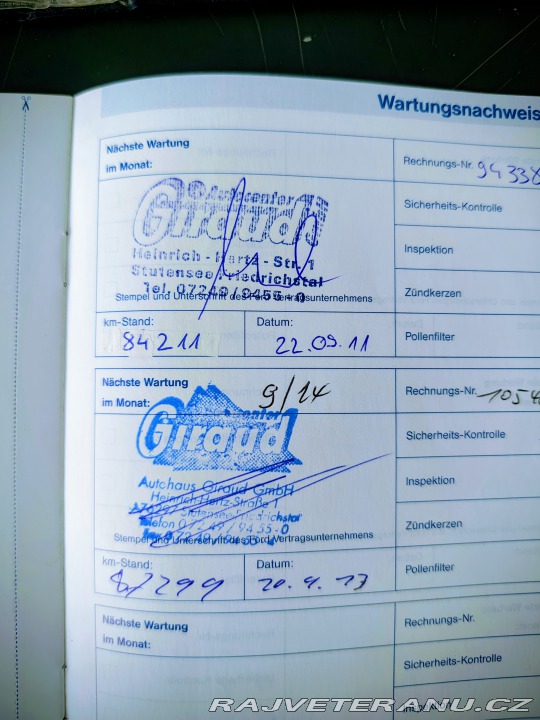 Wartungsnachweis
Nächste Wartung
im Monat:
Rechnungs-Nr. 94338
Autocenter
Giraud
Sicherheits-Kontrolle
Heinrich - Hertz - Str. 1
Stutensee-Friedrichstal
Tel. 07249/9455-0
Inspektion
Stempel und Unterschrift des Ford Vertragsunternehmens
Zündkerzen
km-Stand:
84211
Datum:
22.09.11
Pollenfilter
Nächste Wartung
im Monat:
9/14
Rechnungs-Nr. 1054
Giraud
Sicherheits-Kontrolle
Autohaus Giraud GmbH
Heinrich-Hertz-Straße 1
Stutensee-Friedrichstal
Telefon 07249/9455-0
Inspektion
Stempel und Unterschrift des Ford Vertragsunternehmens
Zündkerzen
km-Stand:
87299
Datum:
20.9.13
Pollenfilter
Nächste Wartung
im Monat:
Rechnungs-Nr.
Sicherheits-Kontrolle
Inspektion
RAJVETERANU.CZ